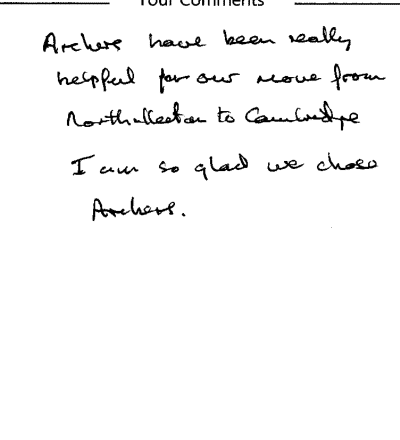 Your Comments
Archers have been really
helpful for our move from
Northallerton to Cambridge
I am so glad we chose
Archers.